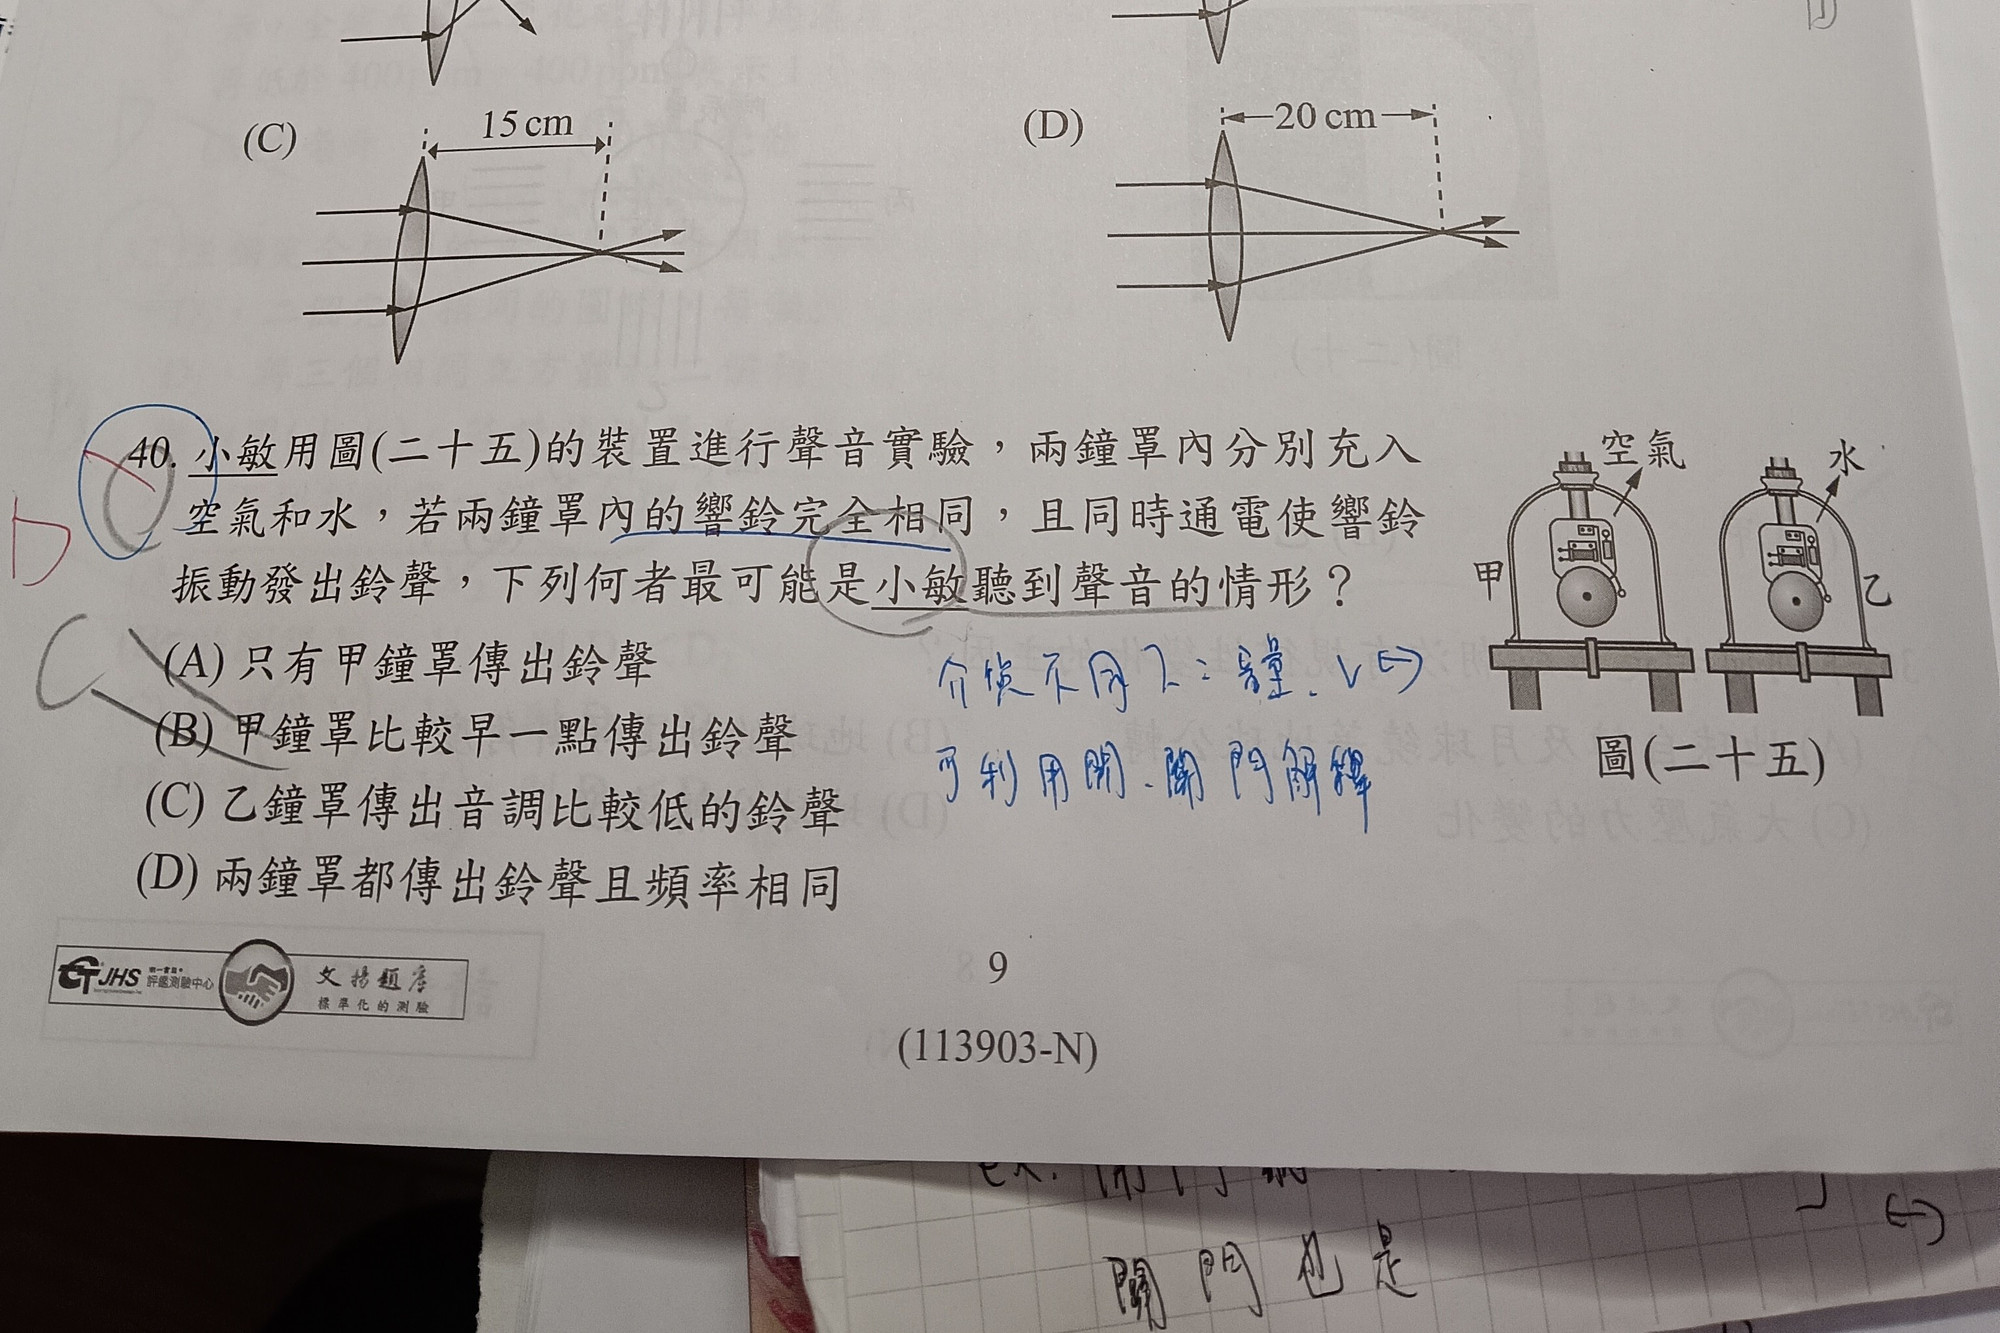 (C)
15 cm
(D)
20 cm
40. 小敏用圖(二十五)的裝置進行聲音實驗，兩鐘罩內分別充入
空氣和水，若兩鐘罩內的響鈴完全相同，且同時通電使響鈴
振動發出鈴聲，下列何者最可能是小敏聽到聲音的情形？
D
C
(A) 只有甲鐘罩傳出鈴聲
(B) 甲鐘罩比較早一點傳出鈴聲
(C) 乙鐘罩傳出音調比較低的鈴聲
(D) 兩鐘罩都傳出鈴聲且頻率相同
空氣
水
甲
乙
圖(二十五)
介質不同
可利用開、關門解釋
CTJHS
評鑑測驗中心
文揚題庫
標準化的測驗
9
(113903-N)
ex. 開門
關門也是